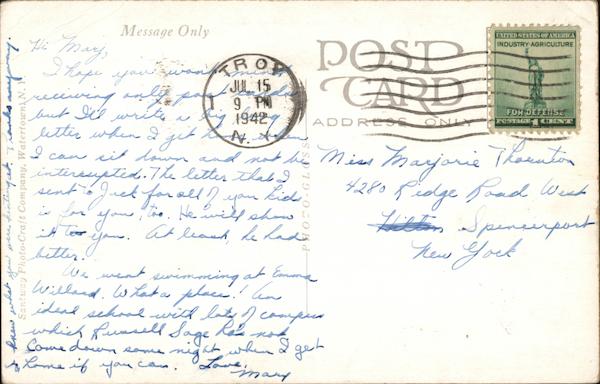 Message Only
Hi Mary,
I hope you won't mind
receiving only post cards
but I'll write a big long
letter when I get home when
I can sit down and not be
interrupted. The letter that I
sent to Jack for all of you kids
is for you, too. He will show
it to you. At least, he had
better.
We went swimming at Emma
Willard. What a place! An
ideal school with lots of campus
which Russell Sage has not
Come down some night when I get
home if you can. Love,
Mary
know what you were hinting at,
Santway Photo-Craft Company, Watertown, N.Y.
PHOTO-GLOSS
TROY
JUL 15
9 PM
1942
N.Y.
1
POST
CARD
ADDRESS ONLY
UNITED STATES OF AMERICA
INDUSTRY-AGRICULTURE
FOR DEFENSE
POSTAGE 1 CENT
Miss Marjorie Thornton
4280 Ridge Road West
Hilton Spencerport
New York